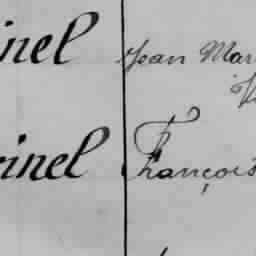 inel Jean Mar
rinel François